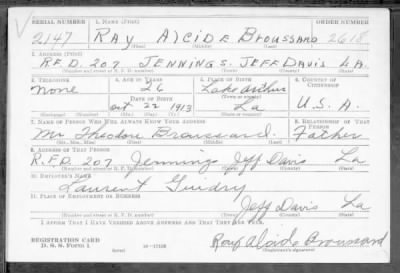 SERIAL NUMBER 1. NAME (Print) ORDER NUMBER
2147 RAY AlCIDE BROUSSARD 2618
(First) (Middle) (Last)
2. ADDRESS (Print)
R.F.D. 207 JENNINGS. JEFF DAVIS LA.
(Number and street or R. F. D. number) (Town) (County) (State)
3. TELEPHONE 4. AGE IN YEARS 5. PLACE OF BIRTH 6. COUNTRY OF CITIZENSHIP
none 26 Lake Arthur
DATE OF BIRTH (Town or county)
Oct 22 1913 La U.S.A.
(Mo.) (Day) (Yr.) (State or country)
7. NAME OF PERSON WHO WILL ALWAYS KNOW YOUR ADDRESS 8. RELATIONSHIP OF THAT PERSON
Mr Theodore Broussard. Father
(Mr., Mrs., Miss) (First) (Middle) (Last)
9. ADDRESS OF THAT PERSON
R.F.D. 207 Jennings Jeff Davis La
(Number and street or R. F. D. number) (Town) (County) (State)
10. EMPLOYER'S NAME
Laurent Guidry
11. PLACE OF EMPLOYMENT OR BUSINESS
Jeff Davis La
(Number and street or R. F. D. number) (Town) (County) (State)
I AFFIRM THAT I HAVE VERIFIED ABOVE ANSWERS AND THAT THEY ARE TRUE.
REGISTRATION CARD
D. S. S. FORM 1 Ray Alcide Broussard
(Registrant's signature)